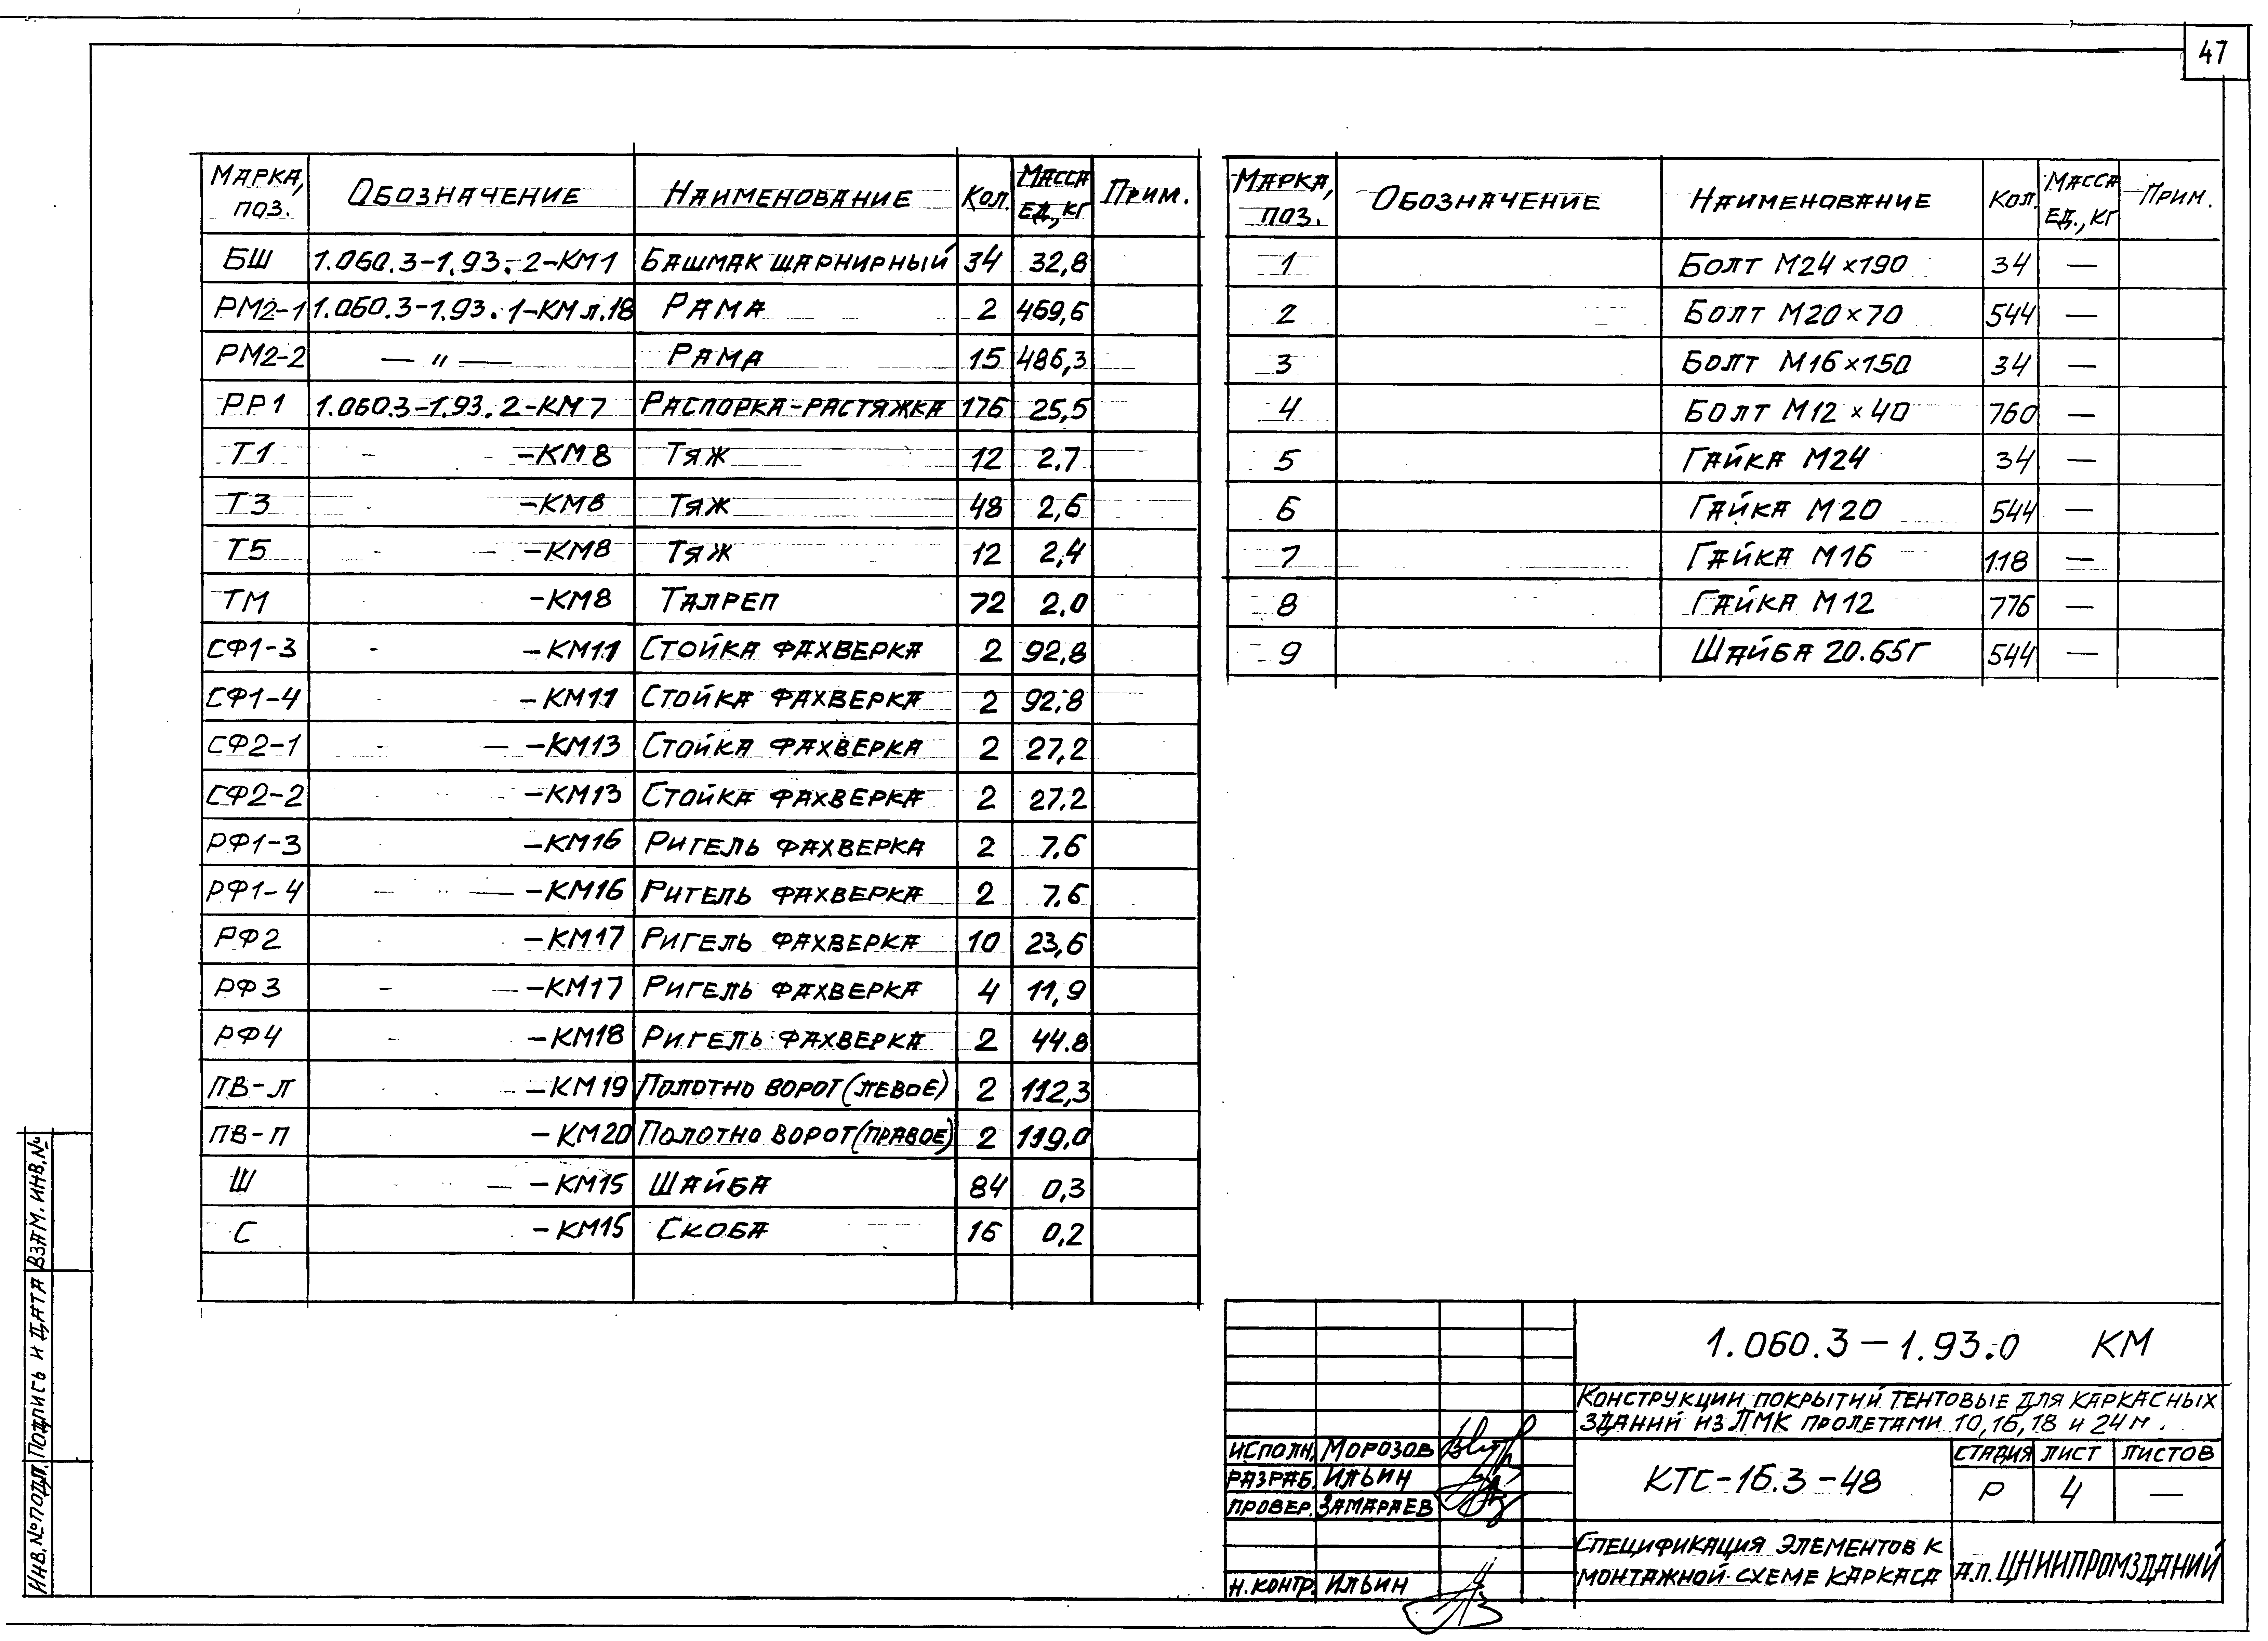 47
МАРКА, ПОЗ. ОБОЗНАЧЕНИЕ НАИМЕНОВАНИЕ КОЛ. МАССА ЕД., КГ ПРИМ.
БШ 1.060.3-1.93.2-КМ1 БАШМАК ШАРНИРНЫЙ 34 32,8
РМ2-1 1.060.3-1.93.1-КМ л.18 РАМА 2 469,6
РМ2-2 — " — РАМА 15 486,3
РР1 1.060.3-1.93.2-КМ7 РАСПОРКА-РАСТЯЖКА 176 25,5
Т1 -КМ8 ТЯЖ 12 2.7
Т3 -КМ8 ТЯЖ 48 2,6
Т5 -КМ8 ТЯЖ 12 2,4
ТМ -КМ8 ТАЛРЕП 72 2.0
СФ1-3 -КМ11 СТОЙКА ФАХВЕРКА 2 92,8
СФ1-4 -КМ11 СТОЙКА ФАХВЕРКА 2 92,8
СФ2-1 -КМ13 СТОЙКА ФАХВЕРКА 2 27,2
СФ2-2 -КМ13 СТОЙКА ФАХВЕРКА 2 27.2
РФ1-3 -КМ16 РИГЕЛЬ ФАХВЕРКА 2 7.6
РФ1-4 -КМ16 РИГЕЛЬ ФАХВЕРКА 2 7.6
РФ2 -КМ17 РИГЕЛЬ ФАХВЕРКА 10 23,6
РФ3 -КМ17 РИГЕЛЬ ФАХВЕРКА 4 11,9
РФ4 -КМ18 РИГЕЛЬ ФАХВЕРКА 2 44.8
ПВ-Л -КМ19 ПОЛОТНО ВОРОТ (ЛЕВОЕ) 2 112,3
ПВ-П -КМ20 ПОЛОТНО ВОРОТ (ПРАВОЕ) 2 119.0
Ш -КМ15 ШАЙБА 84 0,3
С -КМ15 СКОБА 16 0,2
МАРКА, ПОЗ. ОБОЗНАЧЕНИЕ НАИМЕНОВАНИЕ КОЛ. МАССА ЕД., КГ ПРИМ.
1 БОЛТ М24×190 34 —
2 БОЛТ М20×70 544 —
3 БОЛТ М16×150 34 —
4 БОЛТ М12×40 760 —
5 ГАЙКА М24 34 —
6 ГАЙКА М20 544 —
7 ГАЙКА М16 118 —
8 ГАЙКА М12 776 —
9 ШАЙБА 20.65Г 544 —
1.060.3-1.93.0 КМ
КОНСТРУКЦИИ ПОКРЫТИЙ ТЕНТОВЫЕ ДЛЯ КАРКАСНЫХ
ЗДАНИЙ ИЗ ЛМК ПРОЛЕТАМИ 10,16,18 И 24 м.
ИСПОЛН. МОРОЗОВ
РАЗРАБ. ИЛЬИН
ПРОВЕР. ЗАМАРАЕВ
Н.КОНТР. ИЛЬИН
КТС-16.3-48
СТАДИЯ ЛИСТ ЛИСТОВ
Р 4 —
СПЕЦИФИКАЦИЯ ЭЛЕМЕНТОВ К
МОНТАЖНОЙ СХЕМЕ КАРКАСА
А.П. ЦНИИПРОМЗДАНИЙ
ИНВ.№ПОДЛ. ПОДПИСЬ И ДАТА ВЗАМ. ИНВ.№